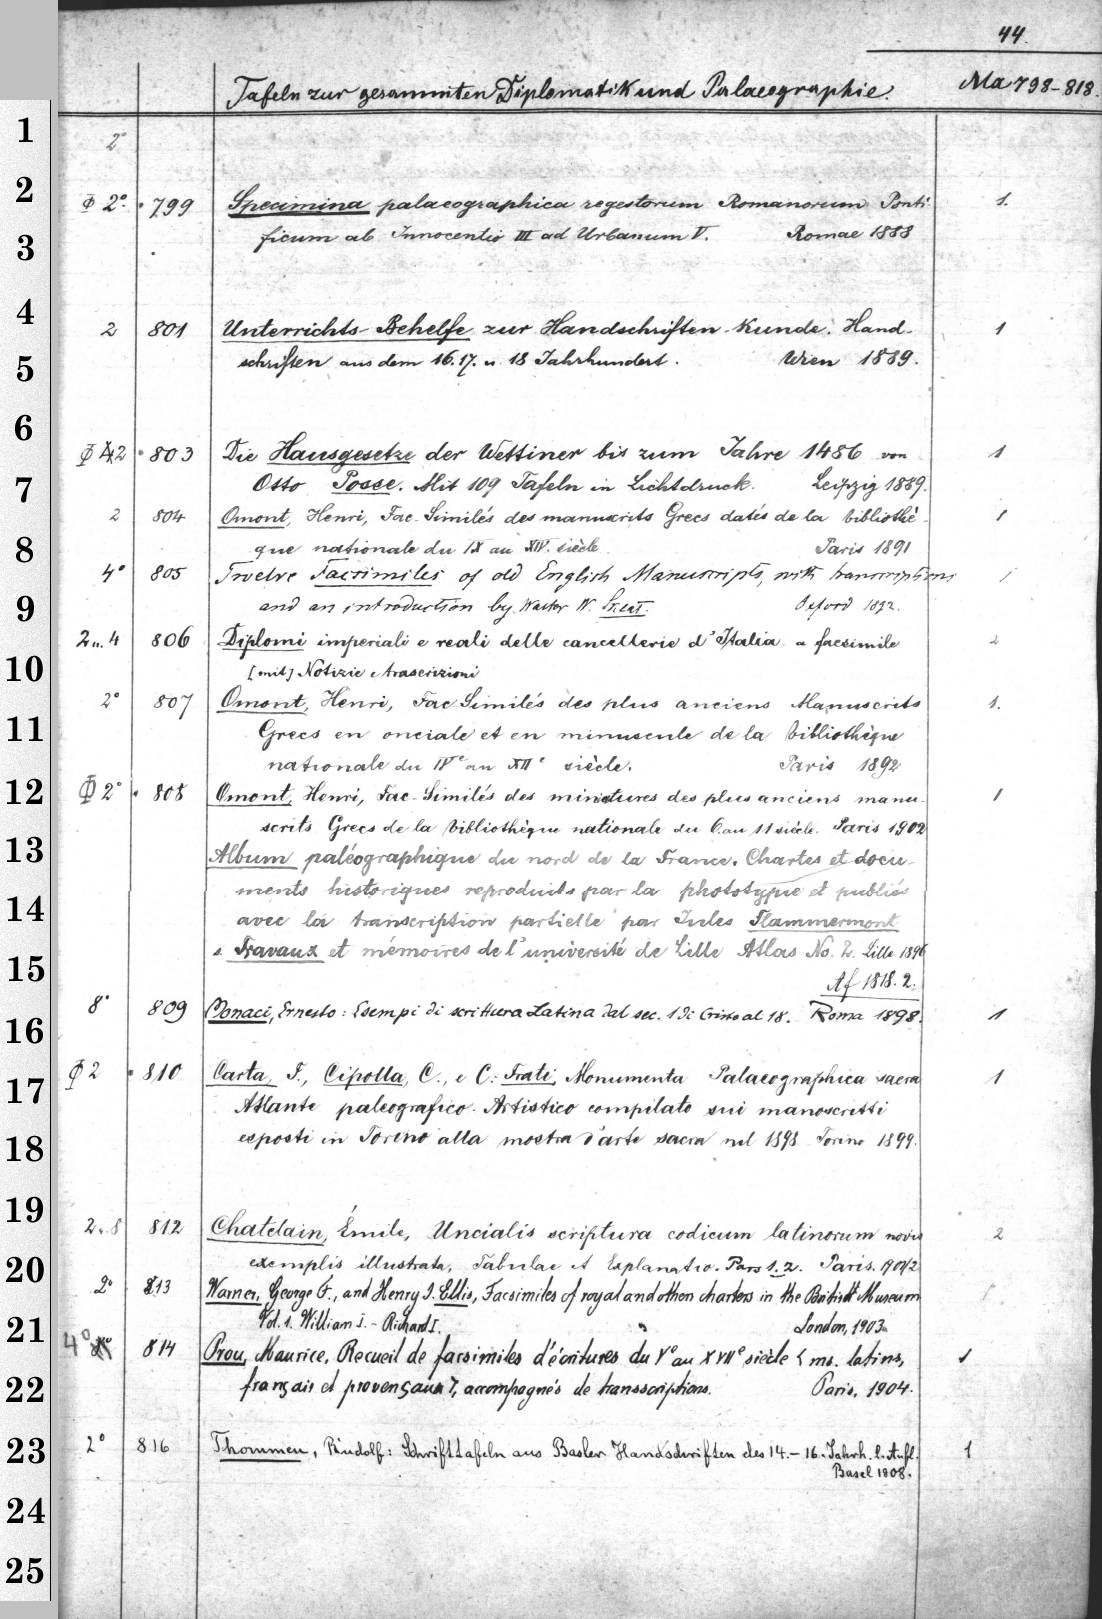 44.
Tafeln zur gesammten Diplomatik und Palaeographie. Ma 798-818.
1 2°
2 Φ 2° · 799 Specimina palaeographica regestorum Romanorum Ponti- 1.
3 ficum ab Innocentio III ad Urbanum V. Romae 1888
4 2 801 Unterrichts-Behelfe zur Handschriften-Kunde. Hand- 1
5 schriften aus dem 16. 17. u. 18 Jahrhundert. Wien 1889.
6 Φ 2 · 803 Die Hausgesetze der Wettiner bis zum Jahre 1486 von 1
7 Otto Posse. Mit 109 Tafeln in Lichtdruck. Leipzig 1889.
2 804 Omont, Henri, Fac-Similés des manuscrits Grecs datés de la bibliothè- 1
8 que nationale du IX au XIV. siècle Paris 1891
4° 805 Twelve Facsimiles of old English Manuscripts, with transcriptions 1
9 and an introduction by Walter W. Skeat. Oxford 1892.
2 u. 4 806 Diplomi imperiali e reali delle cancellerie d'Italia a facsimile 2
10 [mit] Notizie e trascrizioni
2° 807 Omont, Henri, Fac Similés des plus anciens Manuscrits 1.
11 Grecs en onciale et en minuscule de la bibliothèque
nationale du IVe au XIIe siècle. Paris 1892
12 Φ 2° · 808 Omont, Henri, Fac-Similés des miniatures des plus anciens manu- 1
scrits Grecs de la bibliothèque nationale du 6. au 11 siècle. Paris 1902
13 Album paléographique du nord de la France. Chartes et docu-
ments historiques reproduits par la phototypie et publiés
14 avec la transcription partielle par Jules Flammermont
s. Travaux et mémoires de l'université de Lille Atlas No. 2. Lille 1896
15 Af 1818. 2.
8° 809 Monaci, Ernesto: Esempi di scrittura Latina dal sec. 1 di Cristo al 18. Roma 1898. 1
16
17 Φ 2 · 810 Carta, F., Cipolla, C., e C. Frati, Monumenta Palaeographica sacra 1
Atlante paleografico-Artistico compilato sui manoscritti
18 esposti in Torino alla mostra d'arte sacra nel 1898 Torino 1899.
19 2 u. 8 812 Chatelain, Émile, Uncialis scriptura codicum latinorum novis 2
20 exemplis illustrata. Tabulae et Explanatio. Pars 1. 2. Paris. 1901/2
2° 813 Warner, George F., and Henry J. Ellis, Facsimiles of royal and other charters in the British Museum
21 Vol. 1. William I. - Richard I. London, 1903.
4° 814 Prou, Maurice, Recueil de facsimilés d'écritures du Ve au XVIIe siècle (ms. latins, 1
22 français et provençaux), accompagnés de transscriptions. Paris, 1904.
23 2° 816 Thommen, Rudolf: Schrifttafeln aus Basler Handschriften des 14.-16. Jahrh. 2. Aufl. 1
Basel 1908.
24
25